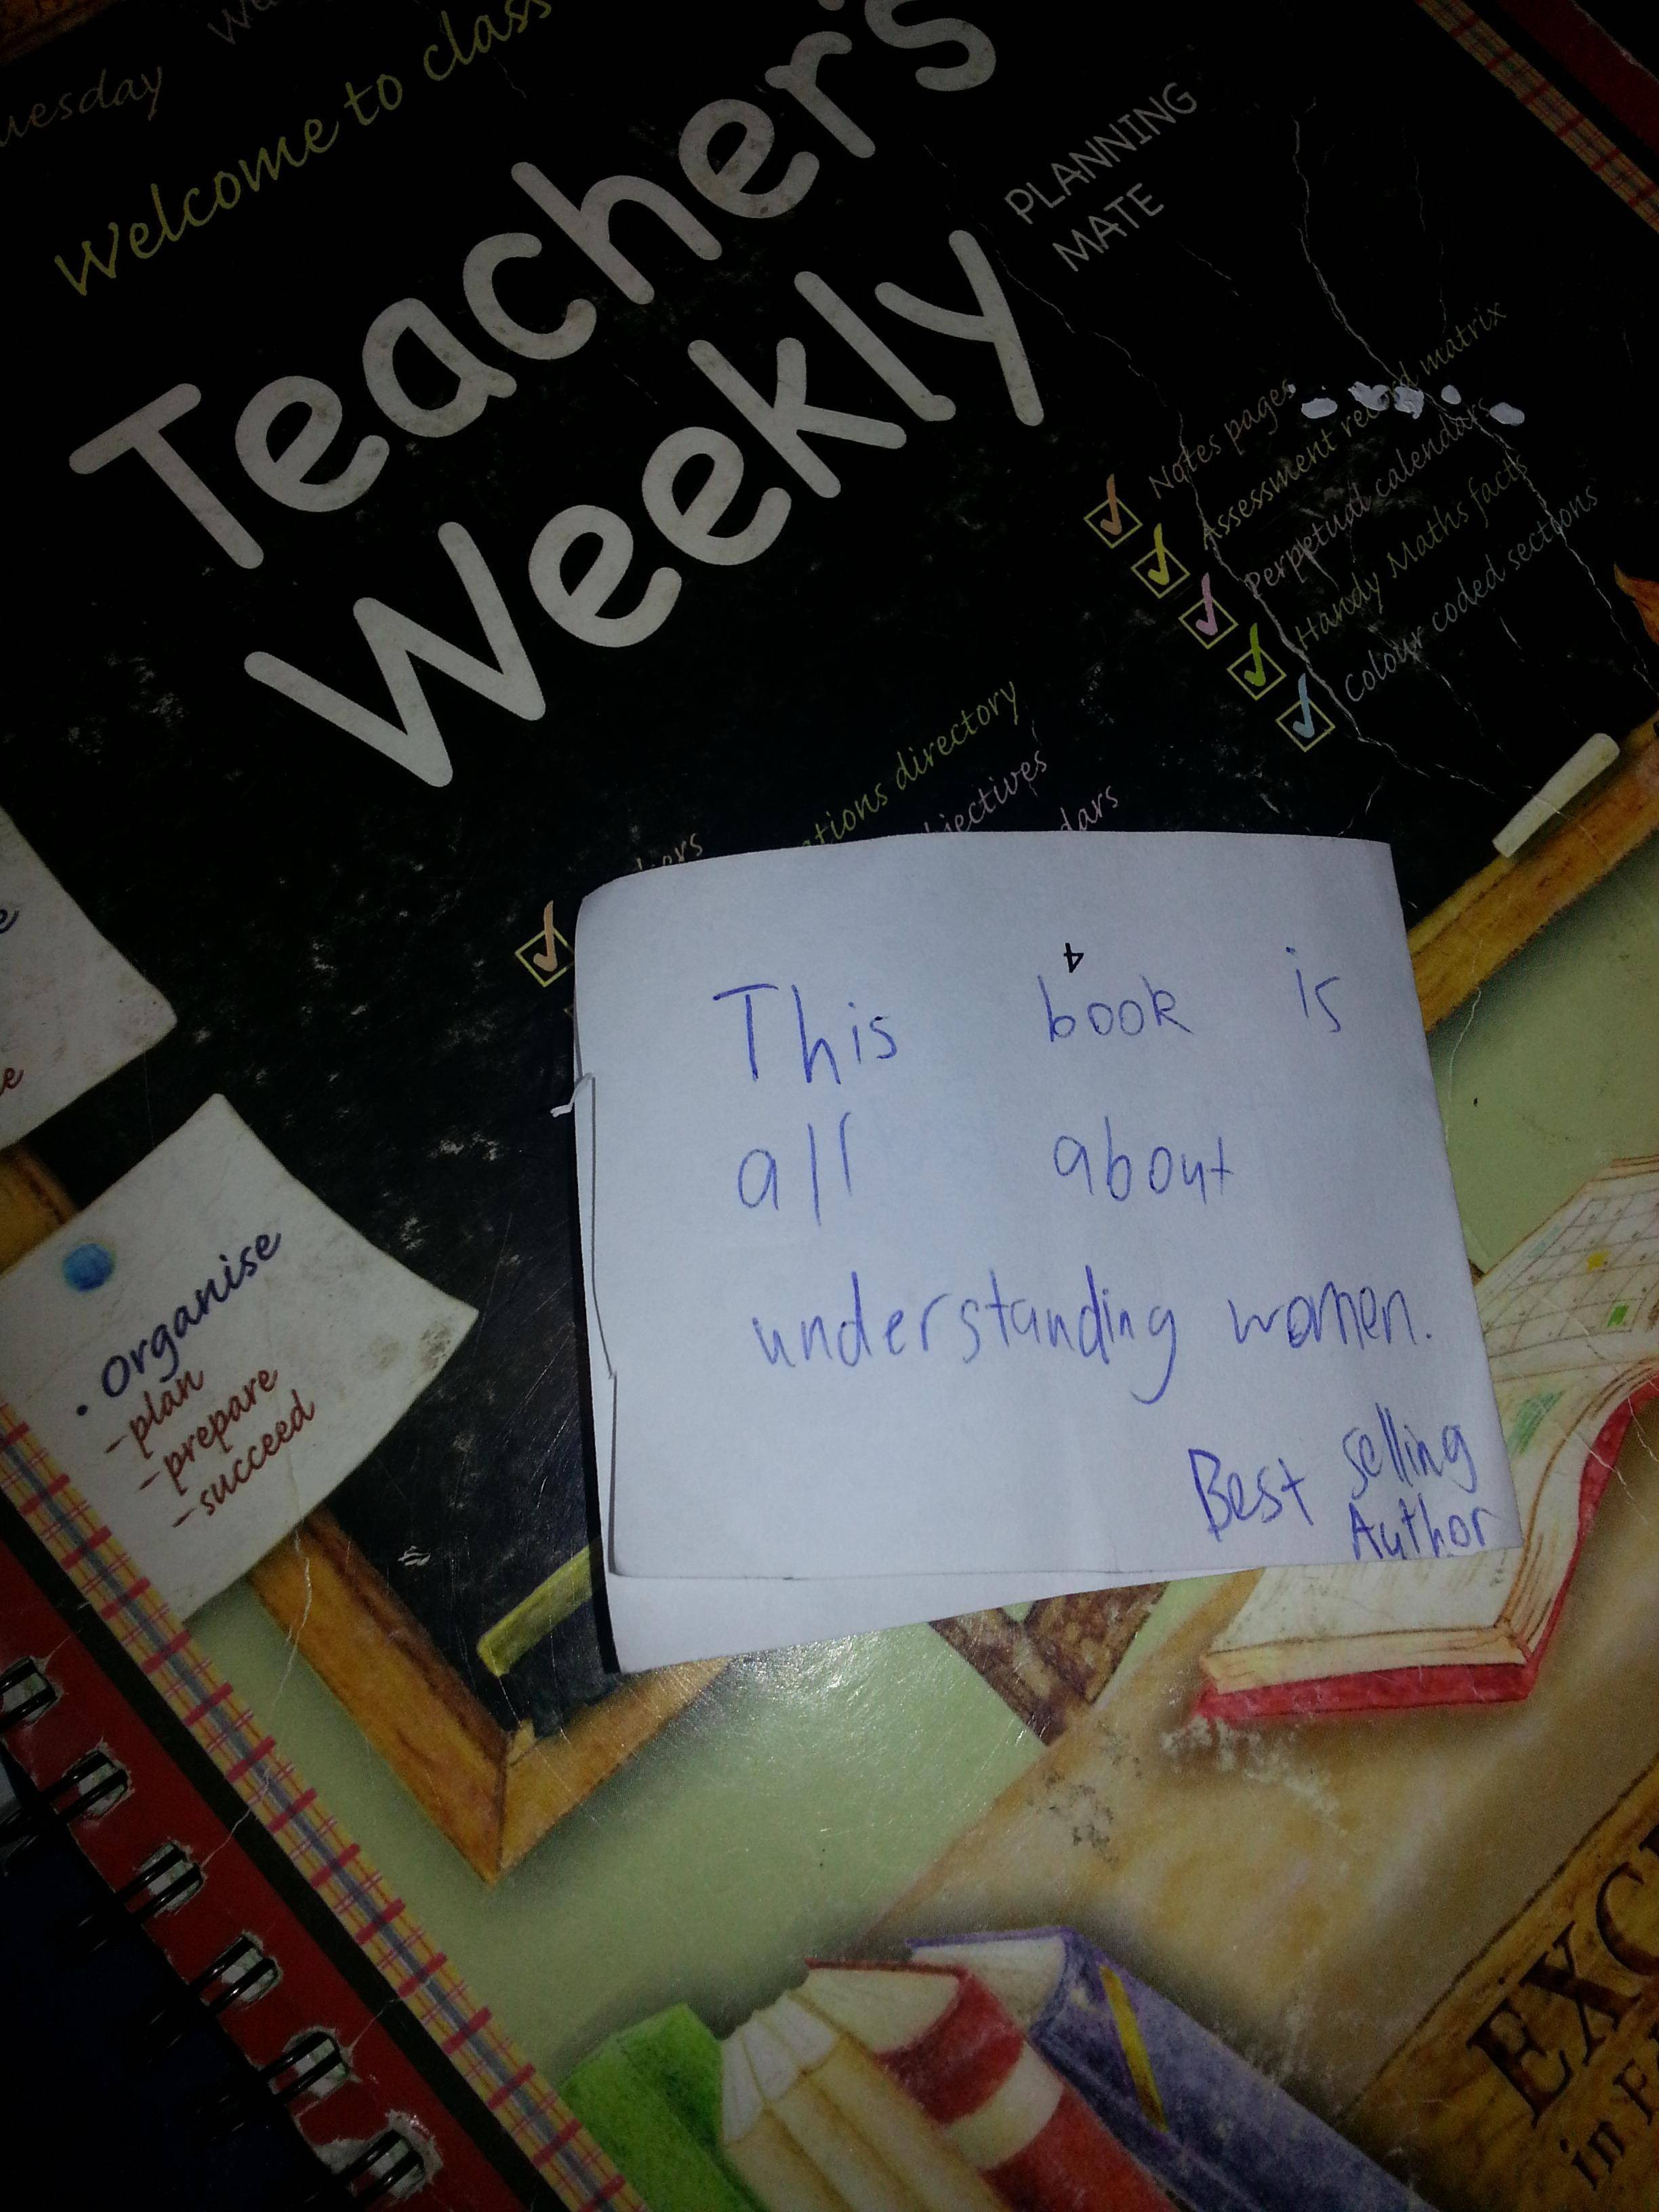 Tuesday
Welcome to class
Teacher's
Weekly
PLANNING
MATE
Notes pages
Assessment record matrix
Perpetual calendars
Handy Maths facts
Colour coded sections
directory
• Organise
-plan
-prepare
-succeed
4
This book is
all about
understanding women.
Best selling
Author
in